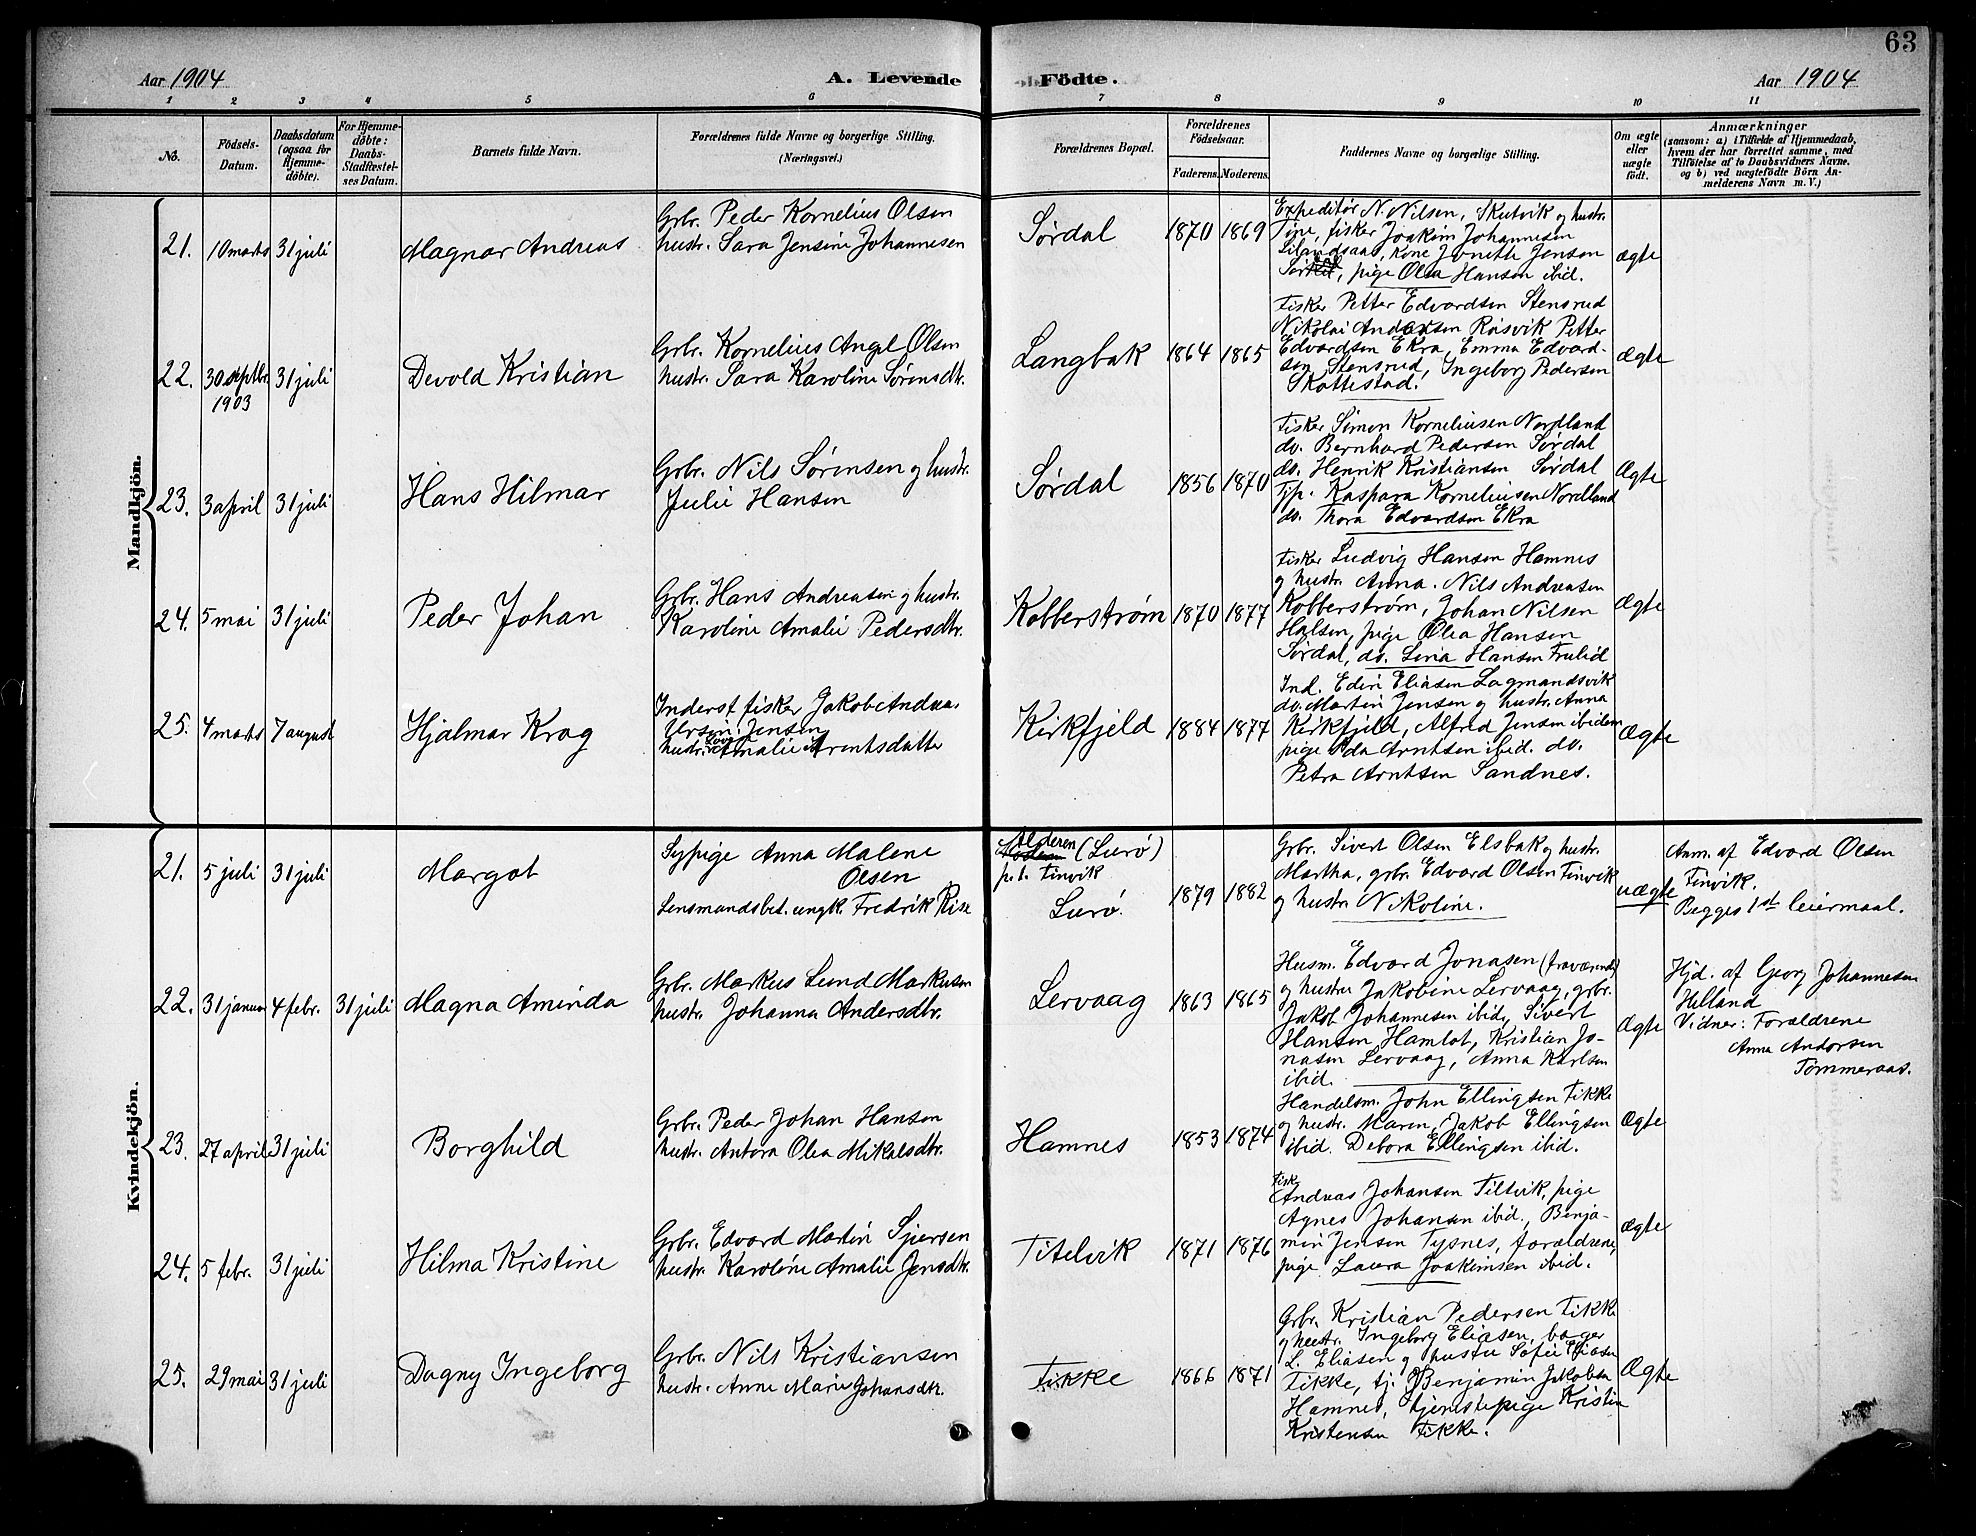 63
Aar 1904
A. Levende
Födte.
Aar 1904
1 2 3 4 5 6 7 8 9 10 11
No.
Födsels-
Datum.
Daabsdatum
(ogsaa for
Hjemme-
döbte).
For Hjemme-
döbte:
Daabs-
Stadfæstel-
ses Datum.
Barnets fulde Navn.
Forældrenes fulde Navne og borgerlige Stilling.
(Næringsvei.)
Forældrenes Bopæl.
Forældrenes
Födselsaar.
Faderens. Moderens.
Faddernes Navne og borgerlige Stilling.
Om ægte
eller
uægte
födt.
Anmærkninger
(saasom: a) i Tilfælde af Hjemmedaab,
hvem der har forrettet samme, med
Tilföielse af to Daabsvidners Navne.
og b) ved uægtefödte Börn An-
melderens Navn m. V.)
Mandkjön.
21. 10 marts 31 juli Magnar Andreas
Grb. Peder Kornelius Olsen
hustr. Sara Jensine Johannesen
Sørdal 1870 1869
Expeditør N. Nilsen, Skutvik og hustr.
Tine, fisker Joakim Johannesen
kone Jonette Jensen
pige Olea Hansen ibid.
ægte
22. 30 septbr. 1903 31 juli Devold Kristian
Grb. Kornelius Angel Olsen
hustr. Sara Karoline Sørensdtr.
Langbak 1864 1865
Fisker Petter Edvardsen Stensrud
Nikolai Andersen Røsvik Petter
Edvardsen Ekra, Emma Edvard-
sen Stensrud, Ingeborg Pedersen
Skottestad.
ægte
23. 3 april 31 juli Hans Hilmar
Grb. Nils Sørensen og hustr.
Julie Hansen
Sørdal 1856 1870
Fisker Simon Korneliusen Nordland
do. Bernhard Pedersen Sørdal
do. Henrik Kristiansen Sørdal
Tjp. Kaspara Korneliusen Nordland
do. Thora Edvardsen Ekra
Ægte
24. 5 mai 31 juli Peder Johan
Grb. Hans Andreasen og hustr.
Karoline Amalie Pedersdtr.
Kobberstrøm 1870 1877
Fisker Ludvig Hansen Hamnes
og hustr. Anna. Nils Andreasen
Kobberstrøm, Johan Nilsen
Halsen, pige Olea Hansen
Sørdal, do. Lina Hansen Frulid
Ægte
25. 4 marts 7 august Hjalmar Krog
Inderst fisker Jakob Andreas
Ursin Jensen
hustr. Amalie Arentsdatter
Kirkfjeld 1884 1877
Ind. Edin Eliasen Lagmandsvik
do. Martin Jensen og hustr. Anna
Kirkfjeld, Alfred Jensen ibidem
pige Ida Arntsen ibid. do.
Petra Arntsen Sandnes.
Ægte
Kvindekjön.
21. 5 juli 31 juli Margot
Sypige Anna Malene
Olsen
Lensmandsbet. ungk. Fredrik Rise
Alderen (Lurø)
p.t. Finvik
Lurø. 1879 1882
Grb. Sivert Olsen Elsbak og hustr.
Martha, grb. Edvard Olsen Finvik
og hustr. Nikoline.
uægte
Anm. af Edvard Olsen
Finvik.
Begges 1st leiermaal.
22. 31 januar 4 febr. 31 juli Magna Aminda
Grb. Markus Lund Markusen
hustr. Johanna Andersdtr.
Lervaag 1863 1865
Husm. Edvard Jonasen (fraværende)
og hustru Jakobine Lervaag, grbr.
Jakob Johannesen ibid, Sivert
Hansen Hamlot, Kristian Jo-
nasen Lervaag, Anna Karlsen
ibid.
Ægte
Hjd. af Georg Johannesen
Helland
Vidner: Forældrene
Anna Andorsen
Tømmeraas.
23. 27 april 31 juli Borghild
Grb. Peder Johan Hansen
hustr. Antora Olea Mikalsdtr.
Hamnes 1853 1874
Handelsm. John Ellingsen Fikke
og hustr. Maren, Jakob Ellingsen
ibid. Debora Ellingsen ibid.
Ægte
24. 5 febr. 31 juli Hilma Kristine
Grb. Edvard Martin Sjursen
hustr. Karoline Amalie Jensdtr.
Titelvik 1871 1876
Fisk.
Andreas Johansen Tiltvik, pige
Agnes Johansen ibid., Benja-
min Jensen Tysnes, forældrene,
pige Laura Joakimsen ibid.
Ægte
25. 29 mai 31 juli Dagny Ingeborg
Grb. Nils Kristiansen
hustr. Anne Marie Johansdtr.
Fikke 1866 1871
Grb. Kristian Pedersen Fikke
og hustr. Ingeborg Eliasen, borger
L. Eliasen og hustru Sofie Eliasen
Fikke, tj. Benjamin Jakobsen
Hamnes, tjenestepige Kristin
Kristensen Fikke.
Ægte